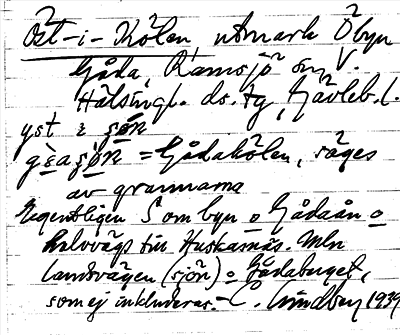 Öst-i-Kölen utmark Öbyn
Gåda, Ramsjö sn, V.
Hälsingl. ds. tg, Gävleb. l.
yst i
= Gådakölen, säges
av grannarna
Egentligen S om byn o Gådaån o
halvvägs till Huskasnäs. Mln
landsvägen (sjön) o Gådaberget,
som ej inkluderas. - C. Lindberg 1939